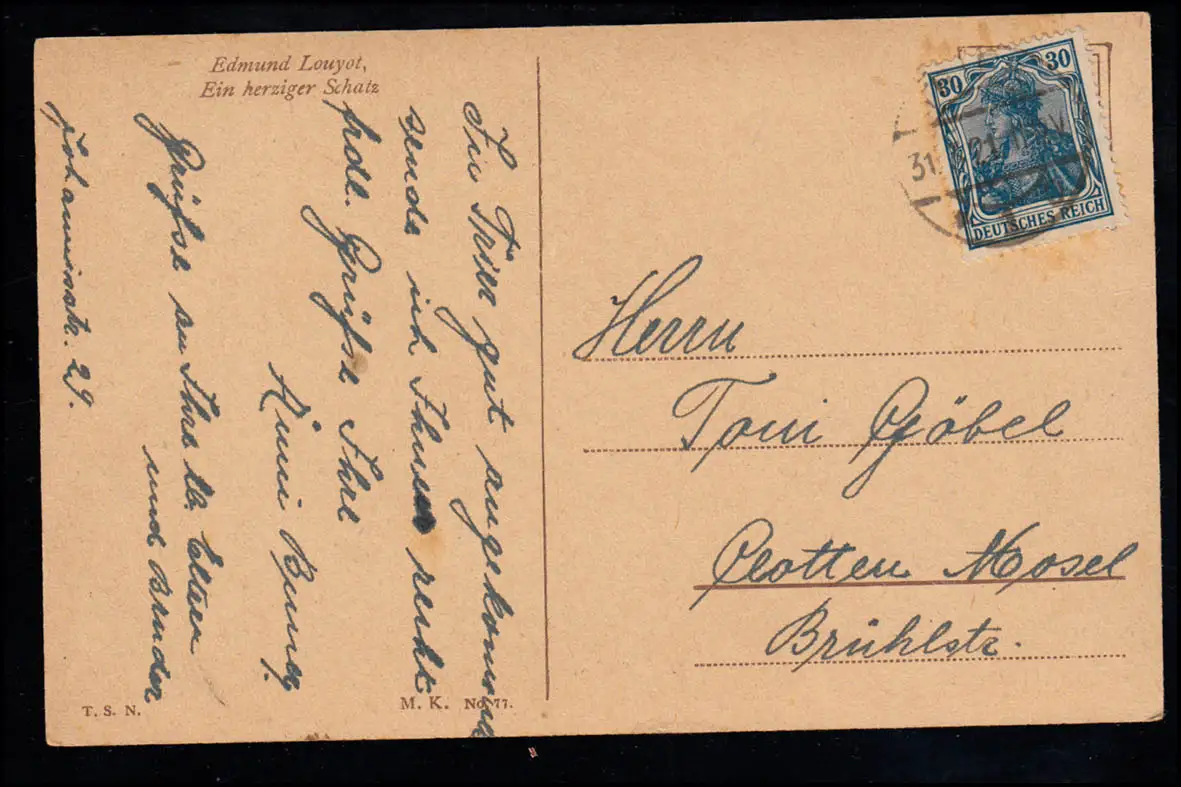 Edmund Louyot,
Ein herziger Schatz
In Trier gut angekommen
sende ich Ihnen recht
frdl. Grüße Ihre
Änni
Grüße an Ihre lb. Eltern
und Bruder
Johannisstr. 29.
T. S. N.
M. K. No. 77.
30 30
DEUTSCHES REICH
31.
Herrn
Toni Göbel
Clotten Mosel
Brühlstr.